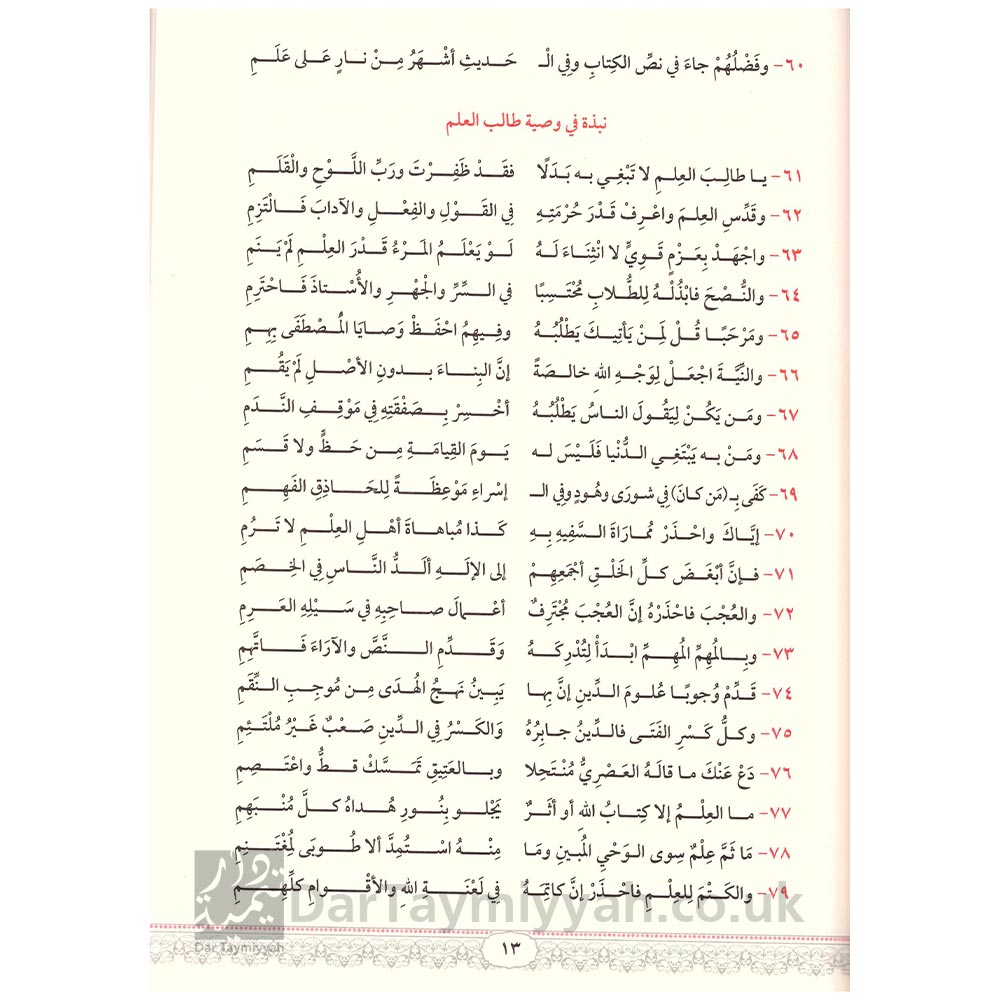 ٦٠- وفَضْلُهُمْ جاءَ في نصِّ الكِتابِ وفِي الْـ حَـديثِ أشْـهَرُ مِـنْ نـارٍ عَلـى عَلَـمِ
نبذة في وصية طالب العلم
٦١- يـا طالِـبَ العِلـمِ لا تَبْغِـي بـه بَـدَلًا فقَـدْ ظَفِـرْتَ ورَبِّ اللَّـوْحِ والْقَلَـمِ
٦٢- وقَدِّسِ العِلمَ واعْرِفْ قَدْرَ حُرْمَتِهِ فِي القَـوْلِ والفِعْـلِ والآدابَ فَـالتَزِمِ
٦٣- واجْهَـدْ بِعَـزْمٍ قَـوِيٍّ لا انْثِنـاءَ لَـهُ لَـوْ يَعْلَـمُ المَـرْءُ قَـدْرَ العِلْـمِ لَمْ يَنَـمِ
٦٤- والنُّصْحَ فابْذُلْـهُ لِلطُّلابِ مُحْتَسِبًا في السِّـرِّ والْجَهْـرِ والأُسْـتاذَ فَـاحْتَرِمِ
٦٥- ومَرْحَبًـا قُـلْ لِمَـنْ يَأتِيـكَ يَطْلُبُـهُ وفِـيهِمُ احْفَـظْ وَصـايا المُصْطَفَى بِهِـمِ
٦٦- والنِّيَّـةَ اجْعَـلْ لِوَجْـهِ اللهِ خالِـصَةً إنَّ البِنـاءَ بـدونِ الأصْـلِ لَمْ يَقُـمِ
٦٧- ومَـن يَكُـنْ لِيَقُـولَ النـاسُ يَطْلُبُـهُ أخْسِـرْ بِـصَفْقَتِهِ فِي مَوْقِـفِ النَّـدَمِ
٦٨- ومَـنْ بـه يَبْتَغِـي الـدُّنْيا فَلَـيْسَ لـه يَـومَ القِيامَـةِ مِـن حَـظٍّ ولا قَـسَمِ
٦٩- كَفَى بِـ(مَن كانَ) فِي شورَى وهُودٍ وفِي الـ إسْراءِ مَوْعِظَـةً لِلحَـاذِقِ الفَهِـمِ
٧٠- إيَّـاكَ واحْـذَرْ مُمـاراةَ السَّـفِيهِ بِـهِ كَـذا مُباهـاةَ أهْـلِ العِلْـمِ لا تَـرُمِ
٧١- فـإنَّ أبْغَـضَ كـلِّ الخَلْـقِ أجْمَعِهِـمْ إلى الإلَـهِ ألَـدُّ النَّـاسِ فِي الخِـصَمِ
٧٢- والعُجْبَ فاحْذَرْهُ إنَّ العُجْبَ مُجْتَرِفٌ أعْمـالَ صـاحِبِهِ فِي سَـيْلِهِ العَـرِمِ
٧٣- وبِـالمُهِمِّ المُهِـمِّ ابْـدَأْ لِتُدْرِكَـهُ وَقَـدِّمِ الـنَّصَّ والآرَاءَ فَـاتَّهِمِ
٧٤- قَـدِّمْ وُجوبًـا عُلـومَ الدِّينِ إنَّ بِهـا يَبِـينُ نهـجُ الهُـدَى مِـن مُوجِـبِ النِّقَـمِ
٧٥- وكـلُّ كَـسْرِ الفَتَـى فالدِّينُ جـابِرُهُ وَالكَـسْرُ فِي الدِّينِ صَـعْبٌ غَـيْرُ مُلْتَـئِمِ
٧٦- دَعْ عَنْـكَ ما قالَهُ العَصْرِيُّ مُنْتَحِلا وبـالعَتِيقِ تَمَـسَّكْ قـطُّ واعْتَـصِمِ
٧٧- مـا العِلْـمُ إلا كِتـابُ اللهِ أو أثَـرٌ يَجْلـو بِنُـورِ هُـداهُ كـلَّ مُنْـبَهِمِ
٧٨- مَا ثَمَّ عِلْمٌ سِوى الوَحْيِ المُبينِ ومَا مِنْـهُ اسْـتُمِدَّ ألا طُـوبَى لِمُغْتَـنِمِ
٧٩- والكَـتْمَ لِلعِلْـمِ فاحْـذَرْ إنَّ كاتِمَـهُ فِي لَعْنَـةِ اللهِ والأقْـوامِ كلِّهِـمِ
دار تيمية
DarTaymiyyah.co.uk
Dar Taymiyyah
١٣